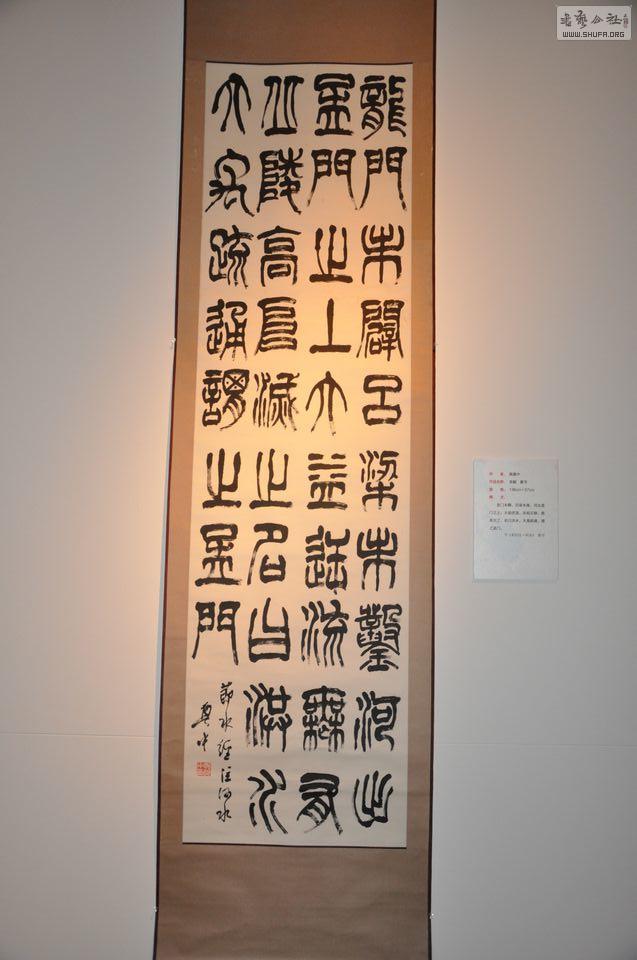 龍門未闢呂梁未鑿河出
孟門之上大益逆流無有
丘陵高阜滅之名曰洪水
大禹疏通謂之孟門
節水經注河水
奠中
書藝公社
WWW.SHUFA.ORG